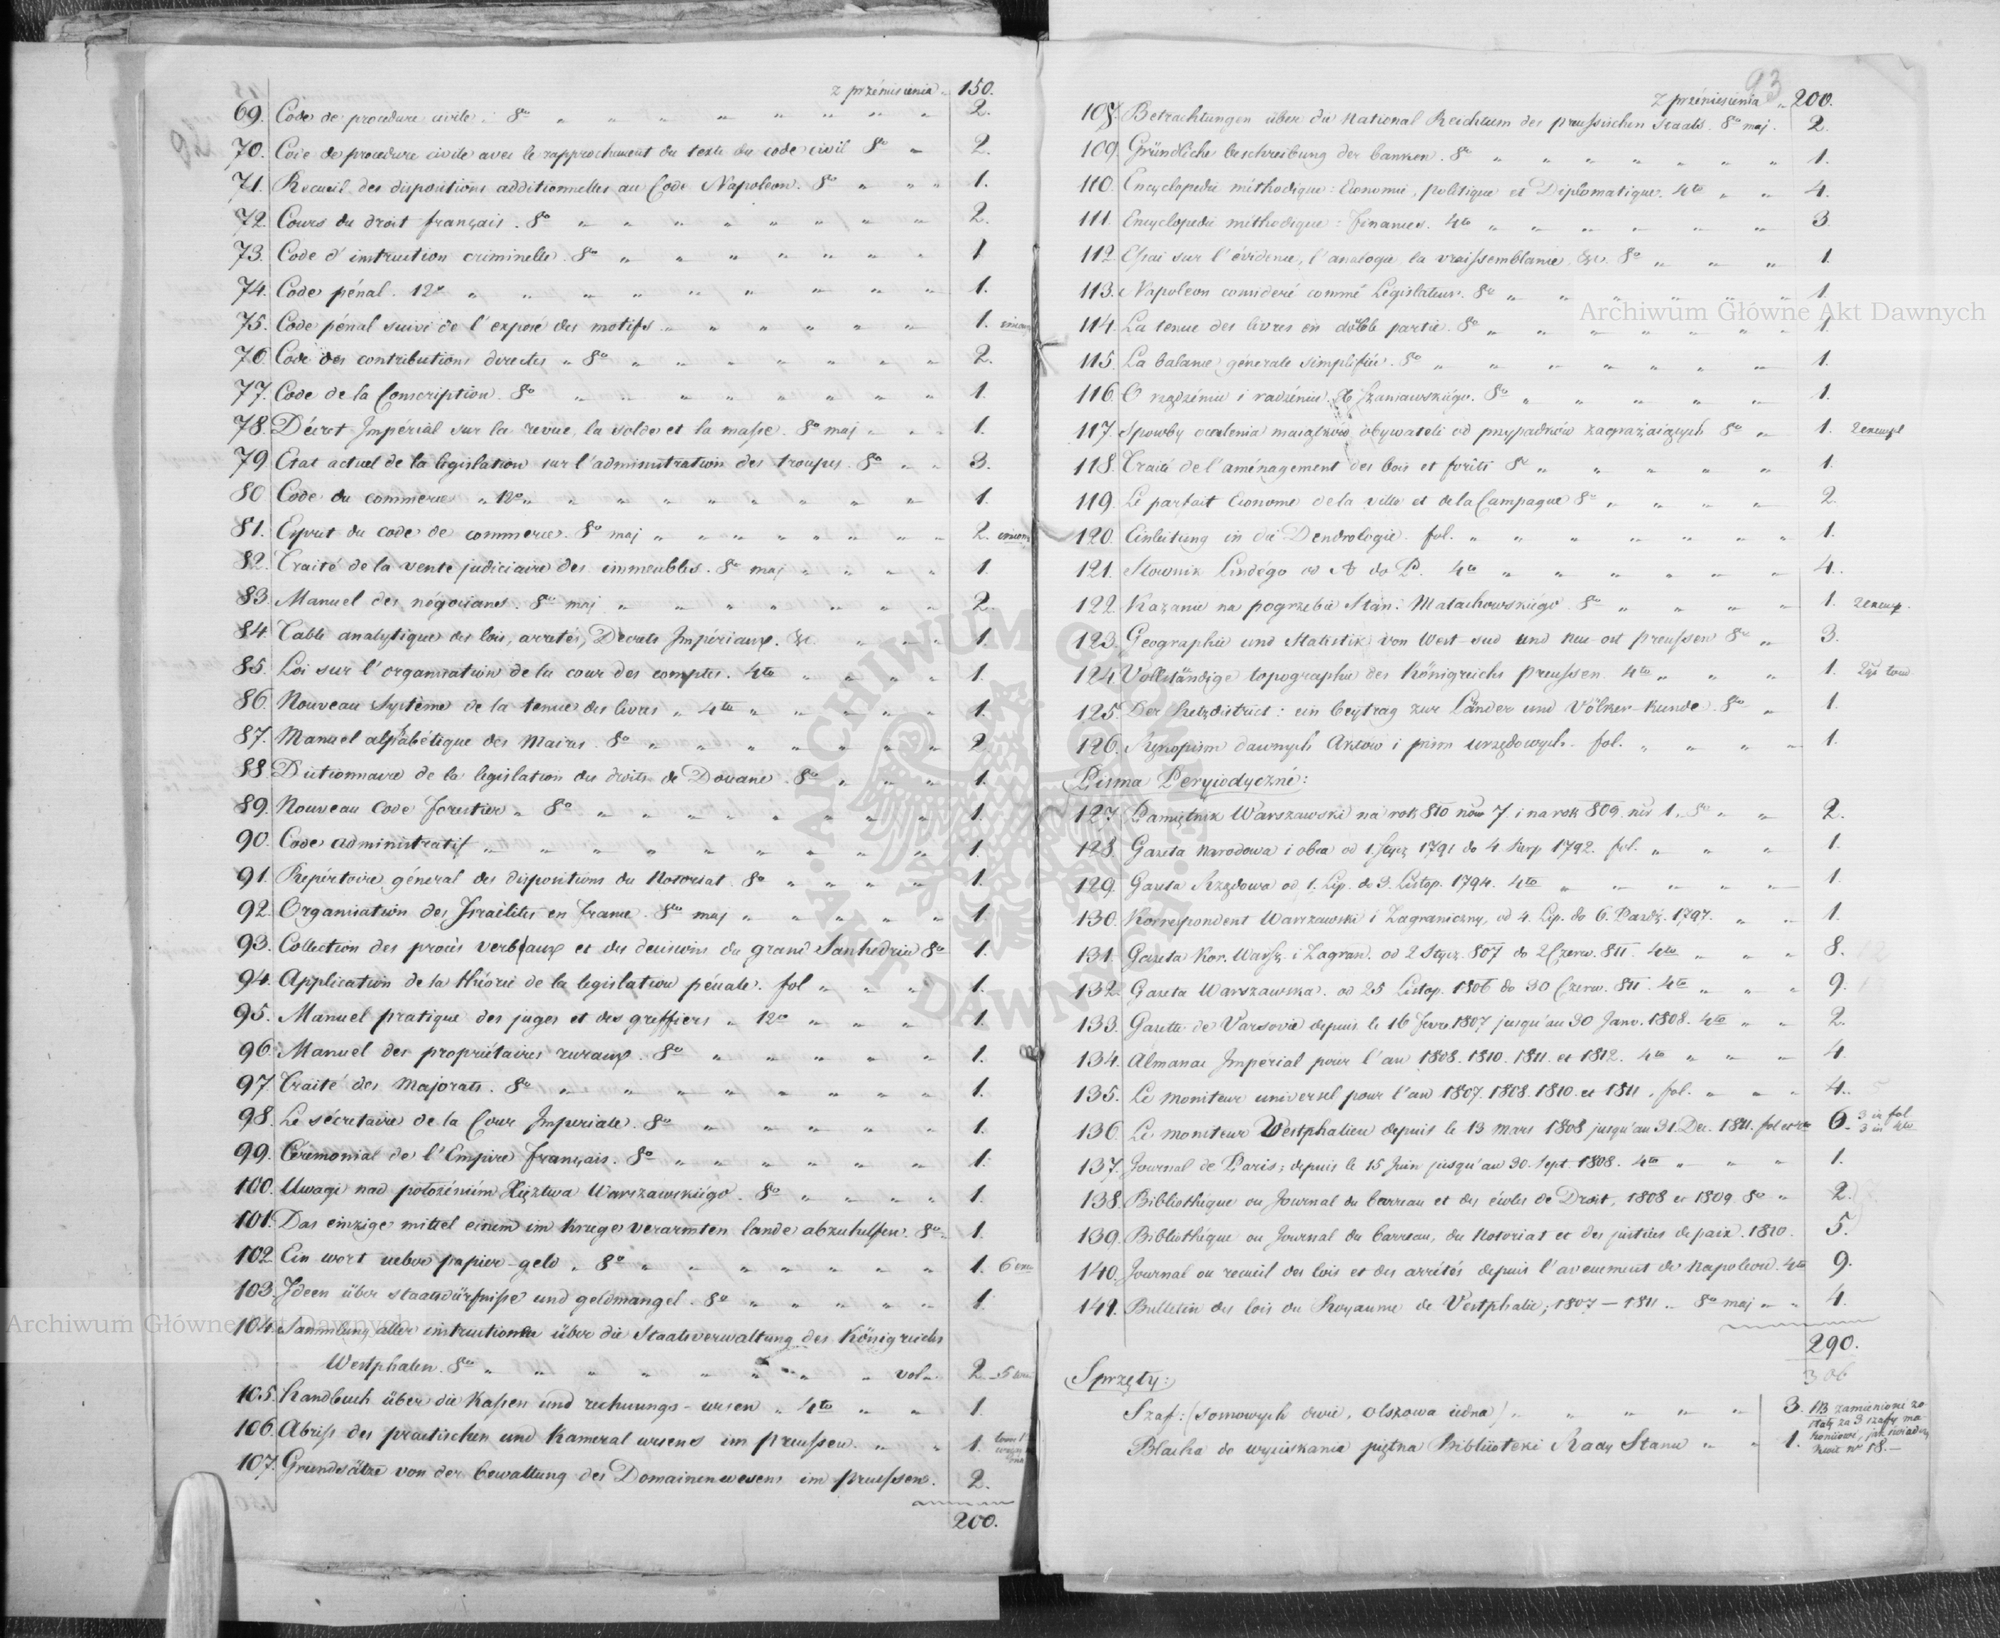 z przéniesienia 150.
69. Code de procedure civile. 8o 2.
70. Code de procedure civile avec le rapprochement du texte du code civil 8o 2.
71. Recueil des dispositions additionnelles au Code Napoleon. 8o 1.
72. Cours du droit français. 8o 2.
73. Code d'instruction criminelle. 8o 1
74. Code pénal. 12o 1.
75. Code pénal suivi de l'exposé des motifs 1.
76. Code des contributions directes 8o 2.
77. Code de la Conscription. 8o 1.
78. Décret Impérial sur la revue, la solde et la masse. 8o maj 1.
79. Etat actuel de la legislation sur l'administration des troupes. 8o 3.
80 Code du commerce 12o 1.
81. Esprit du code de commerce. 8o maj 2.
82. Traité de la vente judiciaire des immeubles. 8o maj 1.
83. Manuel des négocians. 8o maj 2.
84. Table analytique des lois, arretés, Decrets Impériaux. &c. 1.
85. Loi sur l'organisation de la cour des comptes. 4to 1.
86. Nouveau Système de la tenue des livres 4to 1.
87. Manuel alphabétique des Maires. 8o 2
88. Dictionnaire de la legislation des droits de Douane. 8o 1.
89. Nouveau Code Forestier 8o 1.
90. Code administratif 1.
91. Repértoire géneral des dispositions du Notoriat. 8o 1.
92. Organisation des Israëlites en france. 8o maj 1.
93. Collection des procès verbaux et des decisions du grand Sanhedrin 8o 1.
94. Application de la théorie de la legislation pénale. fol 1.
95. Manuel pratique des juges et des greffiers 12o 1.
96. Manuel des propriétaires ruraux. 8o 1.
97. Traité des Majorats. 8o 1.
98. Le sécretaire de la Cour Imperiale. 8o 1.
99. Cérimonial de l'Empire français. 8o 1.
100. Uwagi nad położéniém Xięztwa Warszawskiégo. 8o 1.
101. Das einzige mittel einem im kriege verarmten lande abzuhelfen. 8o 1.
102. Ein wort ueber papier-geld 8o 1.
103. Ideen über staatsdürfnisse und geldmangel. 8o 1.
104. Sammlung aller instructionen über die Staatsverwaltung des Königreichs
Westphalen. 8o vol. 2
105. handbuch über die kassen und rechnungs-wesen 4to 1.
106. Abriss des practischen und Kameral wesens im preussen. 1.
107. Grundsätze von der bewaltung des Domainenwesens im preussen. 2.
200.
93
z przéniesiénia 200.
108. Betrachtungen über du National Reichtum des preussischen Staats. 8o maj. 2.
109. Gründliche beschreibung der banken. 8o 1.
110. Encyclopedie méthodique: Economie, politique et Diplomatique. 4to 4.
111. Encyclopedie méthodique: finances. 4to 3.
112. Essai sur l'évidence, l'analogie, la vraissemblance, &c. 8o 1.
113. Napoleon consideré commé Legislateur. 8o 1.
114. La tenue des livres en double partie. 8o 1.
115. La balance génerale simplifiée. 8o 1.
116. O rządzéniu i radzéniu. X. Szaniawskiégo. 8o 1.
117. Sposoby ocalenia maiątków obywateli od przypadków zagrażaiących 8o 1. 2 exempl
118. Traité de l'aménagement des bois et forêts 8o 1.
119. Le parfait Econome de la ville et de la Campagne 8o 2.
120. Einleitung in die Dendrologie. fol. 1.
121. Słownik Lindégo od A do P. 4to 4.
122. Kazanie na pogrzebie Stan: Małachowskiégo. 8o 1. 2 exemp.
123. Geographie und Statistik von West-sud und neu-ost preussen 8o 3.
124. Vollständige topographie des Königreichs preussen. 4to 1.
125. Der Netzdistrict: ein beÿtrag zur Länder und Völker-Kunde. 8o 1.
126. Rękopism dawnych Aktów i pism urzędowych. fol. 1.
Pisma Peryiodyczné:
127. Pamiętnik Warszawski na rok 810 nów 7 i na rok 809. nr 1. 8o 2.
128. Gazeta Narodowa i obca od 1. Stycz 1791 do 4 Sierp 1792. fol. 1.
129. Gazeta Rządowa od 1. Lip. do 3. Listop. 1794. 4to 1.
130. Korrespondent Warszawski i Zagraniczny, od 4. Lip. do 6. Pazdź. 1797. 1.
131. Gazeta Kor. Warsz. i Zagran. od 2 Stycz. 807 do 2 Czerw. 811. 4to 8.
132. Gazeta Warszawska. od 25 Listop. 1806 do 30 Czerw. 811. 4to 9.
133. Gazette de Varsovie depuis le 16 fevr. 1807 jusqu'au 30 Janv. 1808. 4to 2.
134. Almanac Imperial pour l'an 1808. 1810. 1811. et 1812. 4to 4.
135. Le moniteur universel pour l'an 1807. 1808. 1810. et 1811. fol. 4.
136. Le moniteur Westphalien depuis le 13 mars 1808 jusqu'au 31. Dec. 1811. fol et 4to 6. 3 in fol
3 in 4to
137. Journal de Paris; depuis le 15 Juin jusqu'au 30. Sept. 1808. 4to 1.
138. Bibliothèque ou Journal du barreau et des écoles de Droit, 1808 et 1809. 8o 2.
139. Bibliothèque ou Journal du barreau, du Notoriat et des justices de paix. 1810. 5.
140. Journal ou recueil des lois et des arrêtés depuis l'avenement de Napoleon. 4to 9.
141. Bulletin des lois du Royaume de Vestphalie; 1807–1811. 8o maj 4.
290.
306
Sprzęty:
Szaf: (sosnowych dwie, olszowa iedna) 3. NB zamienioné zo
stały za 3 szafy ma
honiowé, jak świadczy
kwit nr 18.—
Blacha do wyciskania piętna Biblioteki Rady Stanu 1.
Archiwum Główne Akt Dawnych
Archiwum Główne Akt Dawnych
ARCHIWUM GŁÓWNE AKT DAWNYCH